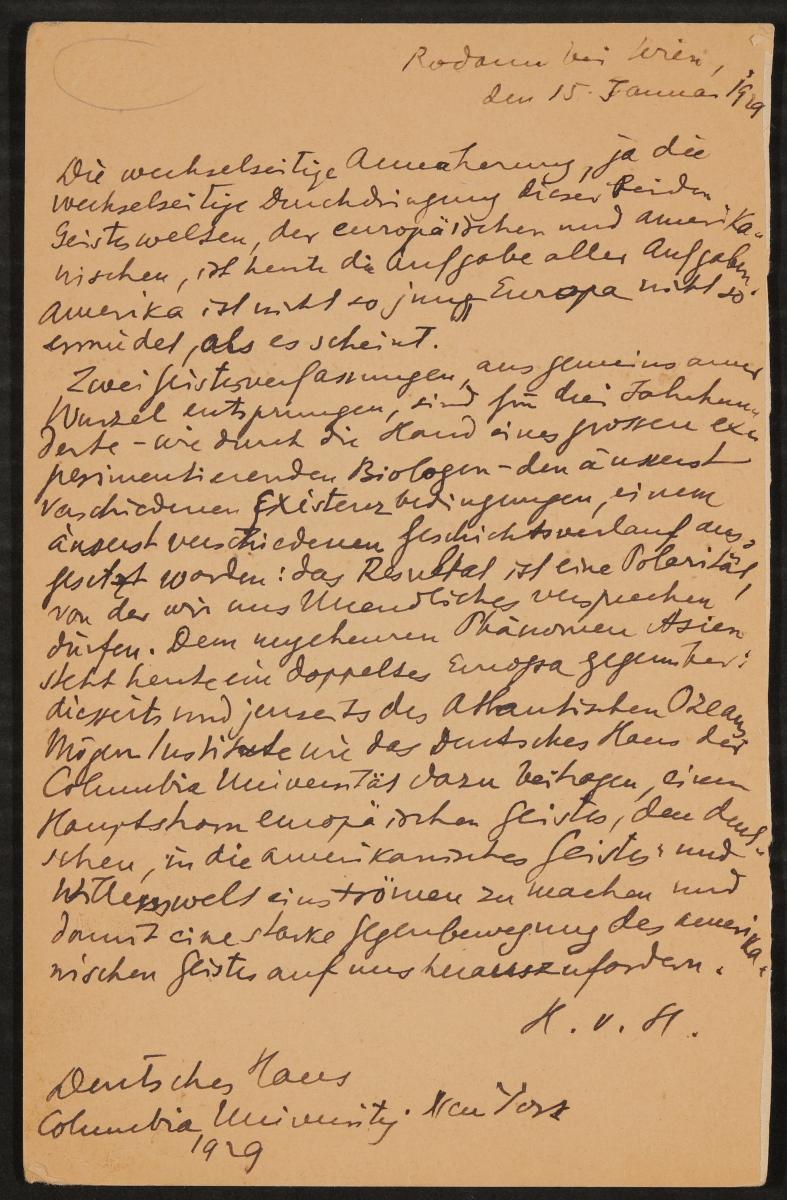 Rodaun bei Wien,
den 15. Januar 1929
Die wechselseitige Annäherung, ja die
wechselseitige Durchdringung dieser beiden
Geisteswelten, der europäischen und amerika-
nischen, ist heute die Aufgabe aller Aufgaben.
Amerika ist nicht so jung, Europa nicht so
ermüdet, als es scheint.
Zwei Geistesverfassungen, aus gemeinsamer
Wurzel entsprungen, sind für drei Jahrhun-
derte – wie durch die Hand eines grossen ex-
perimentierenden Biologen – den äusserst
verschiedenen Existenzbedingungen, einem
äusserst verschiedenen Geschichtsverlauf aus-
gesetzt worden: das Resultat ist eine Polarität,
von der wir uns Unendliches versprechen
dürfen. Dem ungeheuren Phänomen Asien
steht heute ein doppeltes Europa gegenüber:
diesseits und jenseits des Atlantischen Ozeans
Mögen Institute wie das Deutsches Haus der
Columbia Universität dazu beitragen, einen
Hauptstrom europäischen Geistes, den deut-
schen, in die amerikanisches Geistes- und
Willenswelt einströmen zu machen und
damit eine starke Gegenbewegung des amerika-
nischen Geistes auf uns herauszufordern.
H. v. H.
Deutsches Haus
Columbia University. New York
1929